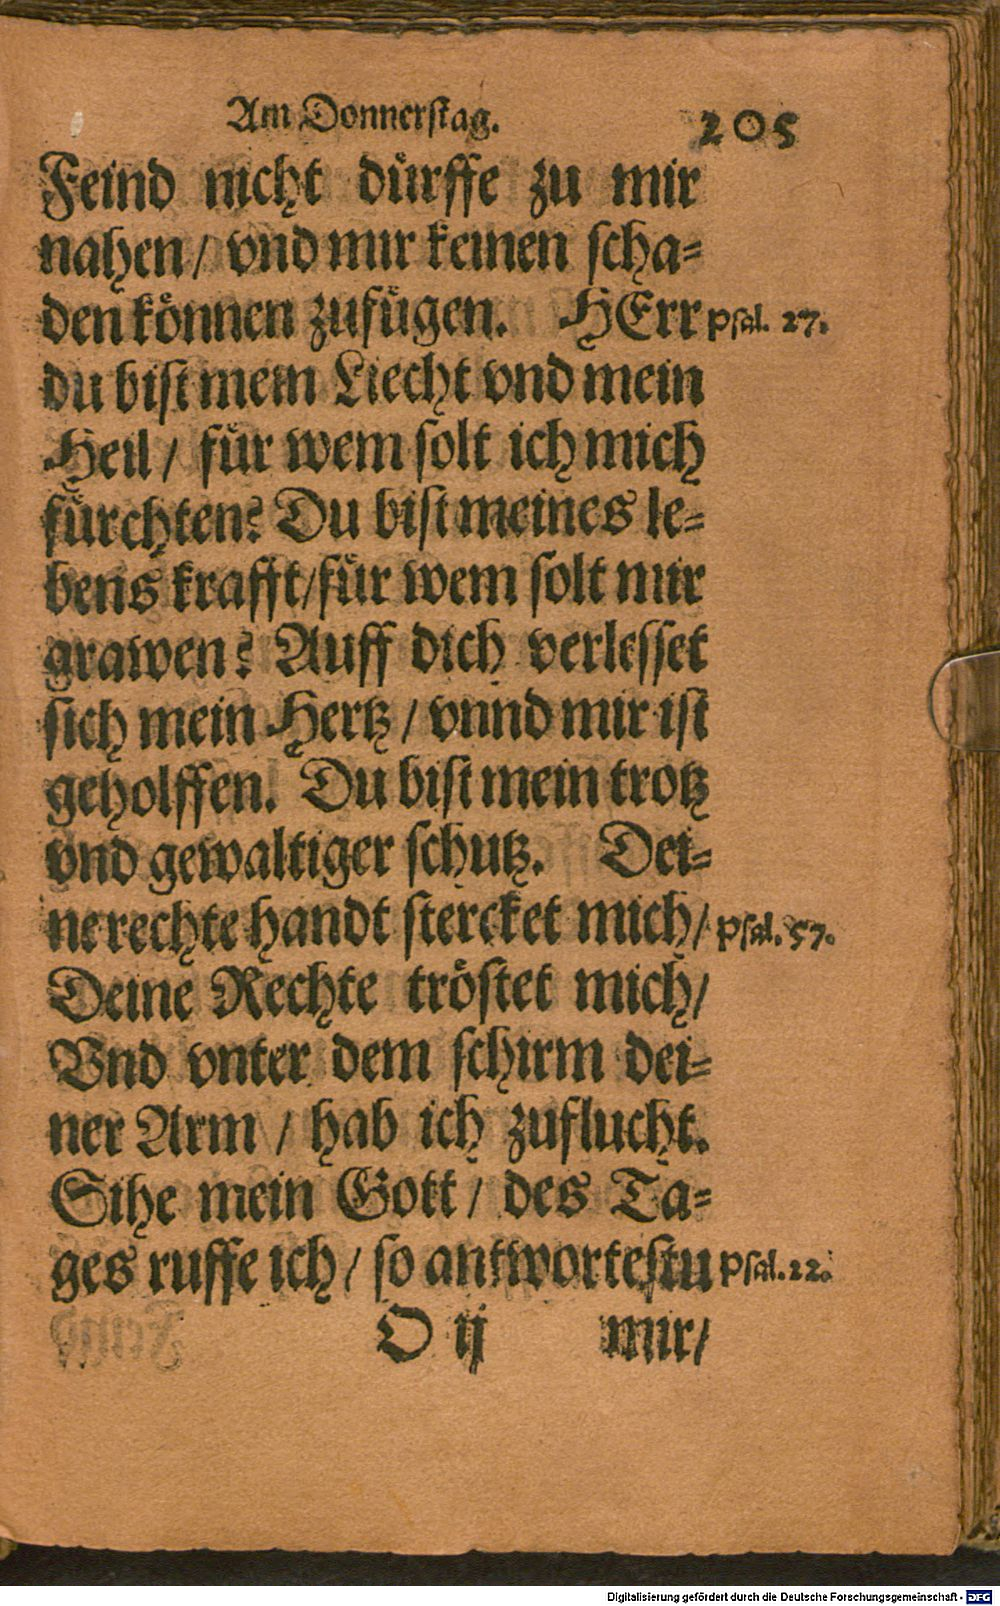 Am Donnerstag. 205
Feind nicht dürffe zu mir
nahen / vnd mir keinen scha-
den können zufügen. HErr Psal. 27.
du bist mein Liecht vnd mein
Heil / für wem solt ich mich
fürchten? Du bist meines le-
bens krafft / für wem solt mir
grawen? Auff dich verlesset
sich mein Hertz / vnnd mir ist
geholffen. Du bist mein trotz
vnd gewaltiger schutz. Dei-
ne rechte handt stercket mich / Psal. 57.
Deine Rechte tröstet mich /
Vnd vnter dem schirm dei-
ner Arm / hab ich zuflucht.
Sihe mein Gott / des Ta-
ges ruffe ich / so antwortestu Psal. 22.
O ij mir /
Digitalisierung gefördert durch die Deutsche Forschungsgemeinschaft - DFG